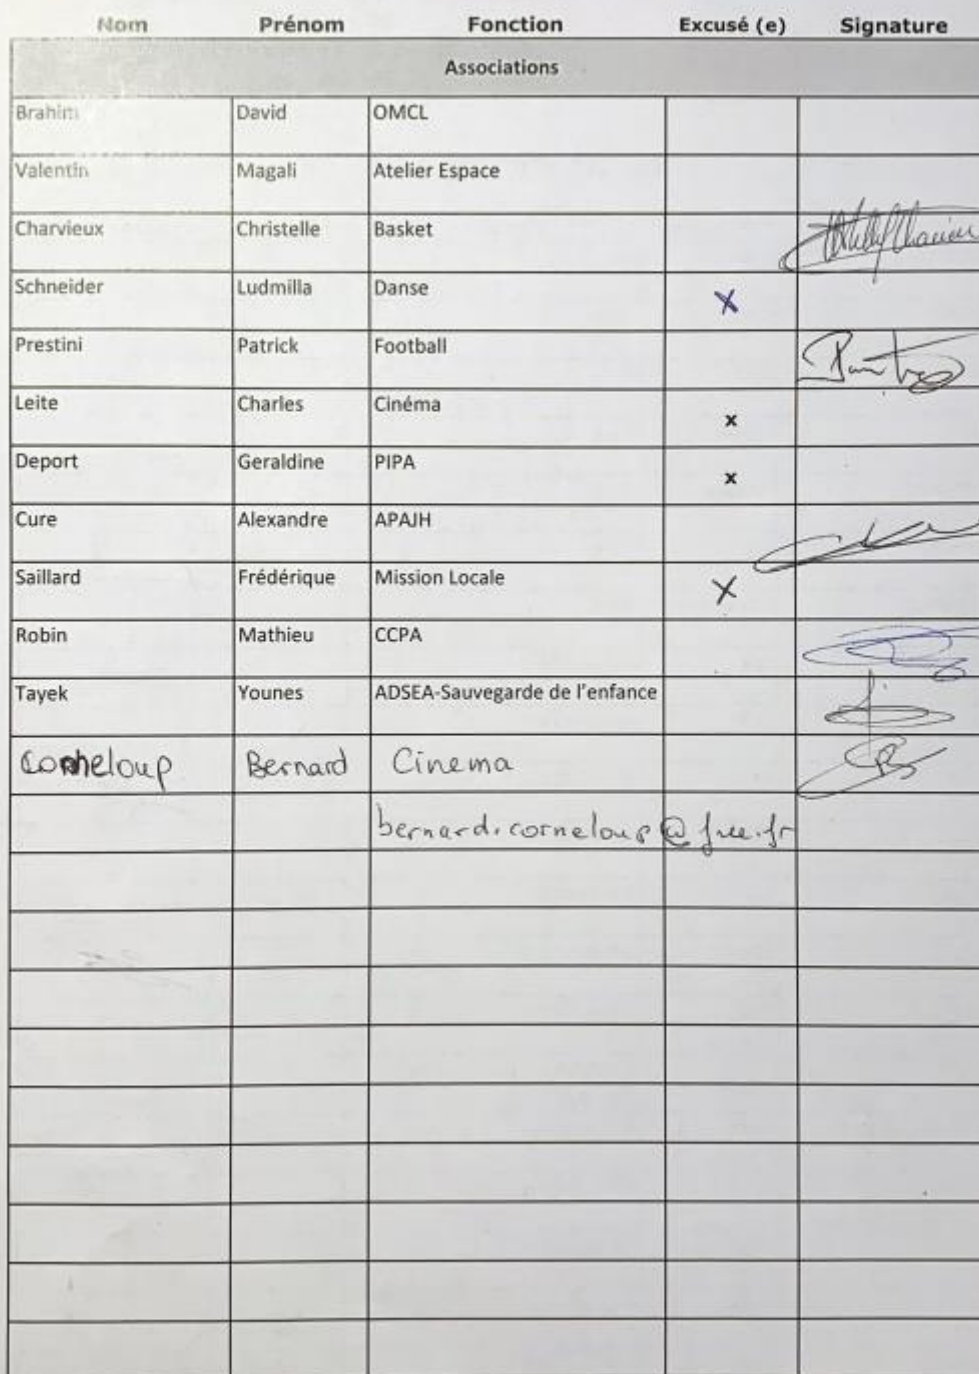 Nom Prénom Fonction Excusé (e) Signature
Associations
Brahim David OMCL
Valentin Magali Atelier Espace
Charvieux Christelle Basket
Schneider Ludmilla Danse X
Prestini Patrick Football
Leite Charles Cinéma x
Deport Geraldine PIPA x
Cure Alexandre APAJH
Saillard Frédérique Mission Locale X
Robin Mathieu CCPA
Tayek Younes ADSEA-Sauvegarde de l'enfance
Corneloup Bernard Cinema
bernard.corneloup@free.fr